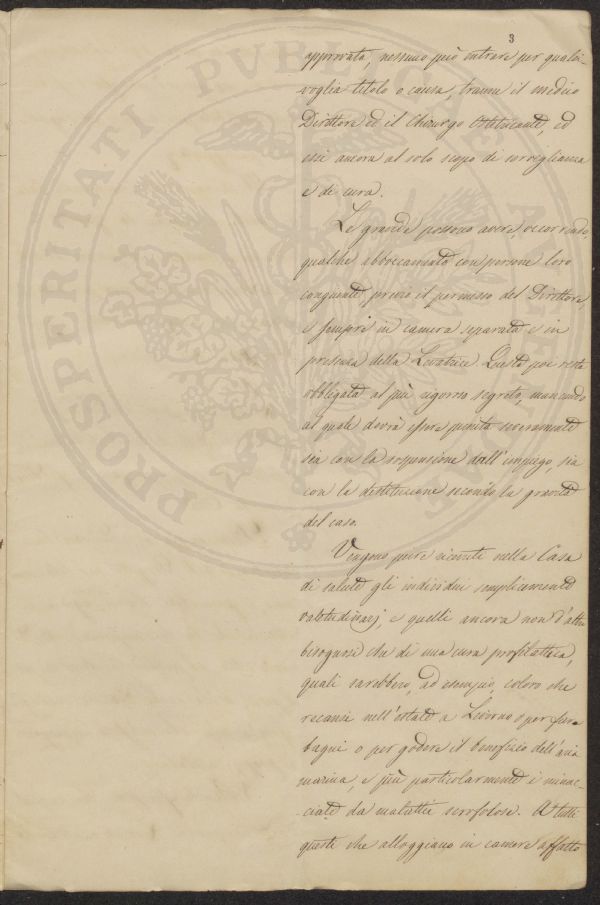 3
approvata, nessuno può entrare per qualsi-
voglia titolo o causa, tranne il medico
Direttore ed il Chirurgo Ostetricante, ed
essi ancora al solo scopo di sorveglianza
e di cura.
Le grandi possono avere, occorrendo,
qualche abboccamento con persone loro
congiunte, previo il permesso del Direttore,
e sempre in camera separata e in
presenza della Levatrice. Questa poi resta
obbligata al più rigoroso segreto, mancando
al quale dovrà essere punita severamente
sia con la sospensione dall'impiego, sia
con la destituzione secondo la gravità
del caso.
Vengono pure ricevuti nella Casa
di salute gli individui semplicemente
valetudinarj, e quelli ancora non d'altro
bisognosi che di una cura profilattica,
quali sarebbero, ad esempio, coloro che
recansi nell'estate a Livorno o per fare
bagni o per godere il beneficio dell'aria
marina, e più particolarmente i minac-
ciati da malattie scrofolose. A tutti
questi che alloggiano in camere affatto
PROSPERITATI PVBLICAE